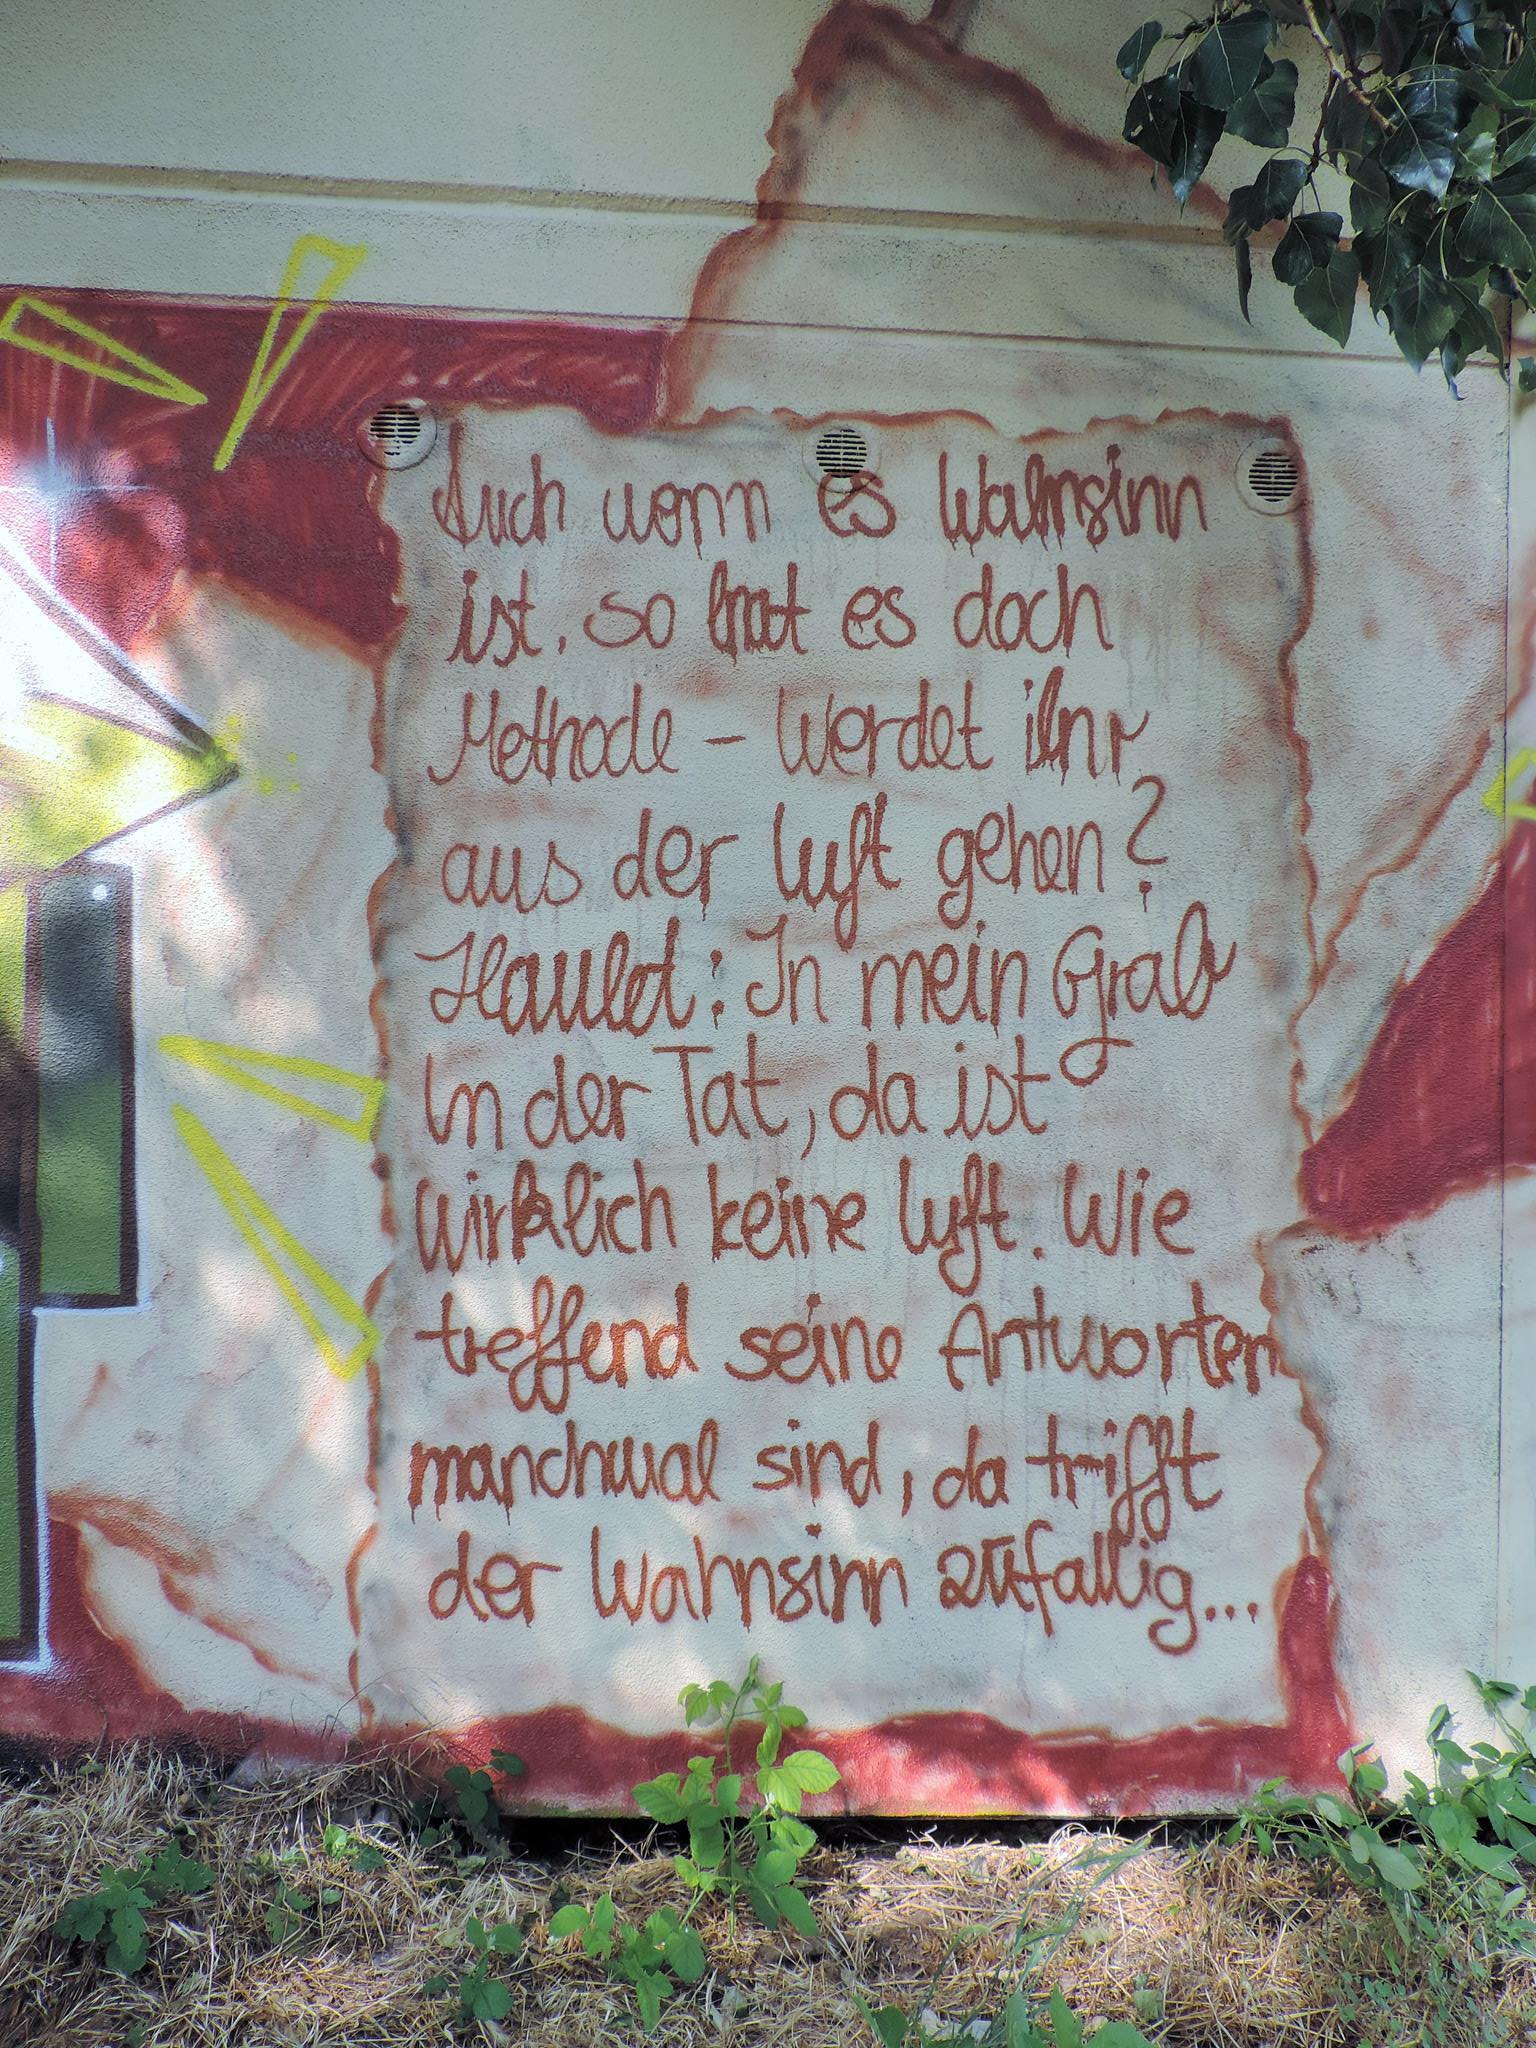 Auch wenn es Wahnsinn
ist, so hat es doch
Methode - Werdet ihr
aus der luft gehen?
Hamlet: In mein Grab
In der Tat, da ist
wirklich keine luft. Wie
treffend seine Antworten
manchmal sind, da trifft
der Wahnsinn zufällig...